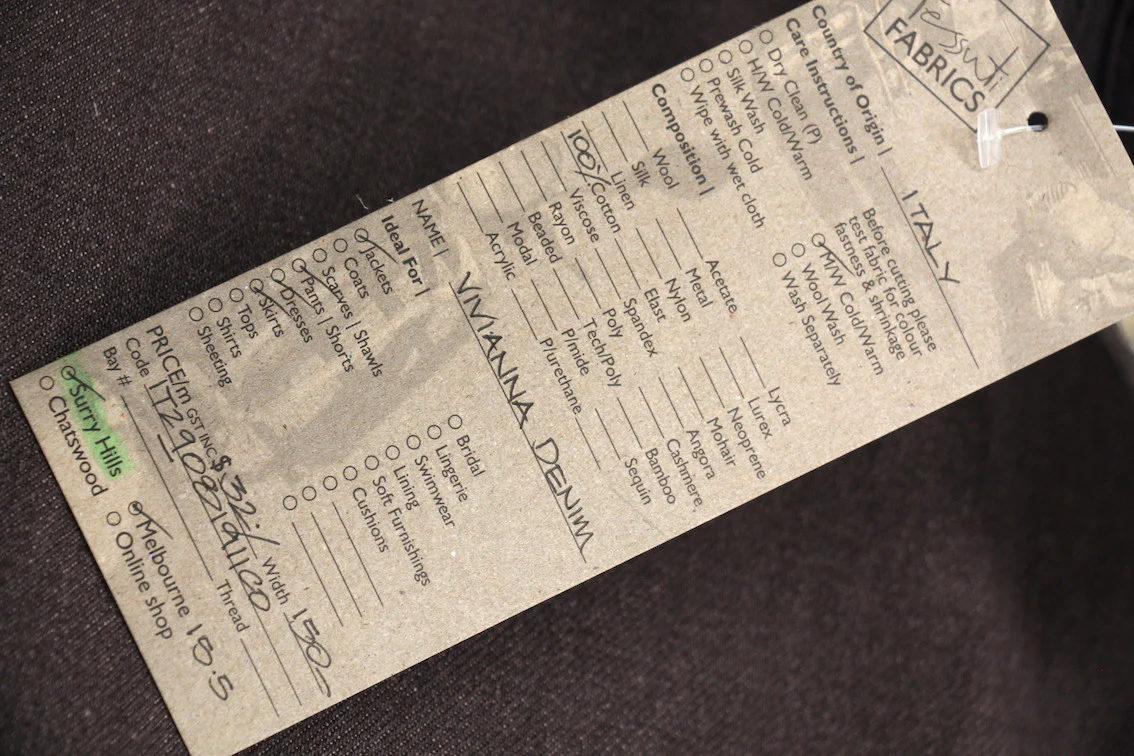 Tessuti
FABRICS
Country of Origin | ITALY
Care Instructions |
Before cutting please
test fabric for colour
fastness & shrinkage
Dry Clean (P)
H/W Cold/Warm
Silk Wash
Prewash Cold
Wipe with wet cloth
M/W Cold/Warm
Wool Wash
Wash Separately
Composition |
Wool Acetate Lycra
Silk Metal Lurex
Linen Nylon Neoprene
100% Cotton Elast Mohair
Viscose Spandex Angora
Rayon Poly Cashmere
Beaded Tech/Poly Bamboo
Modal P/mide Sequin
Acrylic P/urethane
NAME | VIVIANNA DENIM
Ideal For |
Jackets Bridal
Coats Lingerie
Scarves | Shawls Swimwear
Pants | Shorts Lining
Dresses Soft Furnishings
Skirts Cushions
Tops
Shirts
Sheeting
PRICE/m GST INC $ 32/ Width 150
Code
Bay # Thread
Surry Hills Melbourne 18.5
Chatswood Online shop